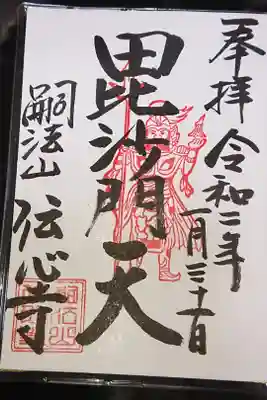 奉拝 令和二年
一月三十一日
毘沙門天
嗣法山 伝心寺